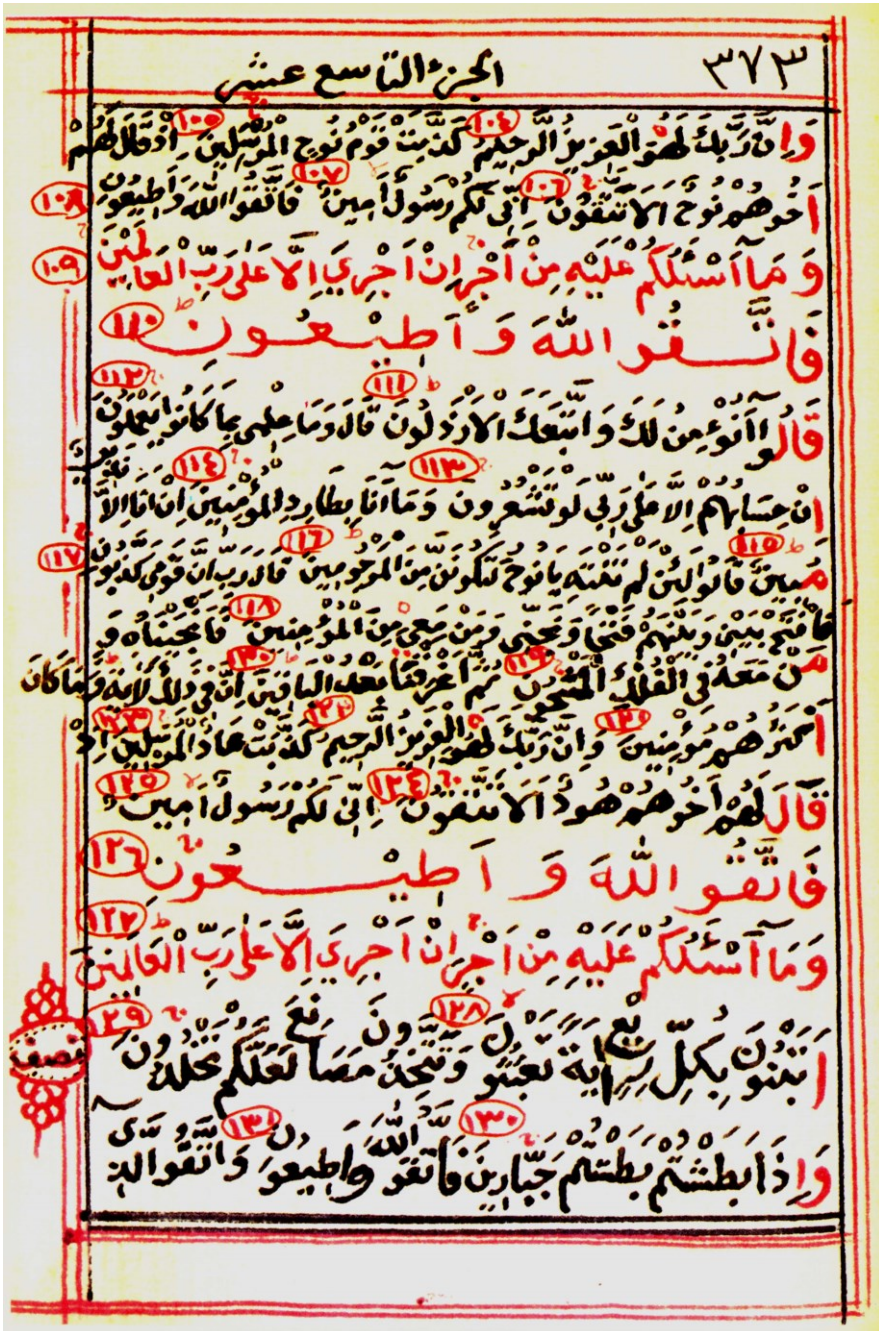 ٣٧٣ الجزء التاسع عشر
وَاِنَّ رَبَّكَ لَهُوَ الْعَزِيزُ الرَّحِيمُ ١٠٤ كَذَّبَتْ قَوْمُ نُوحِ الْمُرْسَلِينَ ١٠٥ اِذْ قَالَ لَهُمْ
اَخُوهُمْ نُوحٌ اَلَا تَتَّقُونَ ١٠٦ اِنِّى لَكُمْ رَسُولٌ اَمِينٌ ١٠٧ فَاتَّقُوا اللّٰهَ وَاَطِيعُونِ ١٠٨
وَمَآ اَسْـَٔلُكُمْ عَلَيْهِ مِنْ اَجْرٍ اِنْ اَجْرِيَ اِلَّا عَلٰى رَبِّ الْعَالَمِينَ ١٠٩
فَاتَّقُوا اللّٰهَ وَاَطِيْعُونِ ١١٠
قَالُوا اَنُؤْمِنُ لَكَ وَاتَّبَعَكَ الْاَرْذَلُونَ ١١١ قَالَ وَمَا عِلْمِى بِمَا كَانُوا يَعْمَلُونَ ١١٢
اِنْ حِسَابُهُمْ اِلَّا عَلٰى رَبِّى لَوْ تَشْعُرُونَ ١١٣ وَمَآ اَنَا بِطَارِدِ الْمُؤْمِنِينَ ١١٤ اِنْ اَنَا اِلَّا نَذِيرٌ
مُبِينٌ ١١٥ قَالُوا لَئِنْ لَمْ تَنْتَهِ يَا نُوحُ لَتَكُونَنَّ مِنَ الْمَرْجُومِينَ ١١٦ قَالَ رَبِّ اِنَّ قَوْمِى كَذَّبُونِ ١١٧
فَافْتَحْ بَيْنِى وَبَيْنَهُمْ فَتْحًا وَنَجِّنِى وَمَنْ مَعِيَ مِنَ الْمُؤْمِنِينَ ١١٨ فَاَنْجَيْنَاهُ وَ
مَنْ مَعَهُ فِى الْفُلْكِ الْمَشْحُونِ ١١٩ ثُمَّ اَغْرَقْنَا بَعْدُ الْبَاقِينَ ١٢٠ اِنَّ فِى ذٰلِكَ لَاٰيَةً وَمَا كَانَ
اَكْثَرُهُمْ مُؤْمِنِينَ ١٢١ وَاِنَّ رَبَّكَ لَهُوَ الْعَزِيزُ الرَّحِيمُ ١٢٢ كَذَّبَتْ عَادٌ الْمُرْسَلِينَ ١٢٣ اِذْ
قَالَ لَهُمْ اَخُوهُمْ هُودٌ اَلَا تَتَّقُونَ ١٢٤ اِنِّى لَكُمْ رَسُولٌ اَمِينٌ ١٢٥
فَاتَّقُوا اللّٰهَ وَاَطِيْعُونِ ١٢٦
وَمَآ اَسْـَٔلُكُمْ عَلَيْهِ مِنْ اَجْرٍ اِنْ اَجْرِيَ اِلَّا عَلٰى رَبِّ الْعَالَمِينَ ١٢٧
اَتَبْنُونَ بِكُلِّ رِيعٍ اٰيَةً تَعْبَثُونَ ١٢٨ وَتَتَّخِذُونَ مَصَانِعَ لَعَلَّكُمْ تَخْلُدُونَ ١٢٩
نصف
وَاِذَا بَطَشْتُمْ بَطَشْتُمْ جَبَّارِينَ ١٣٠ فَاتَّقُوا اللّٰهَ وَاَطِيعُونِ ١٣١ وَاتَّقُوا الَّذِىٓ